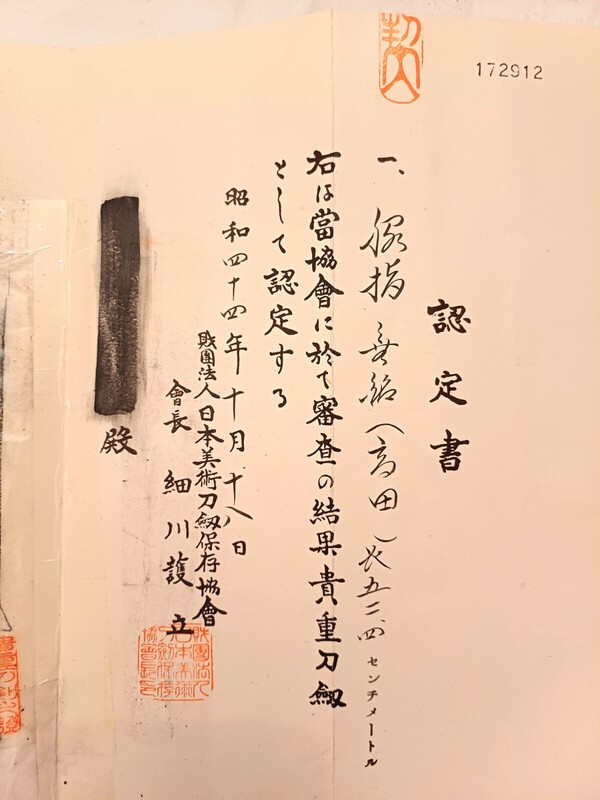 172912
認定書
一、脇指 無銘（高田）長五二、四センチメートル
右は當協會に於て審査の結果貴重刀劔
として認定する
昭和四十四年十月十八日
財團法人日本美術刀劔保存協會
會長 細川護立
殿